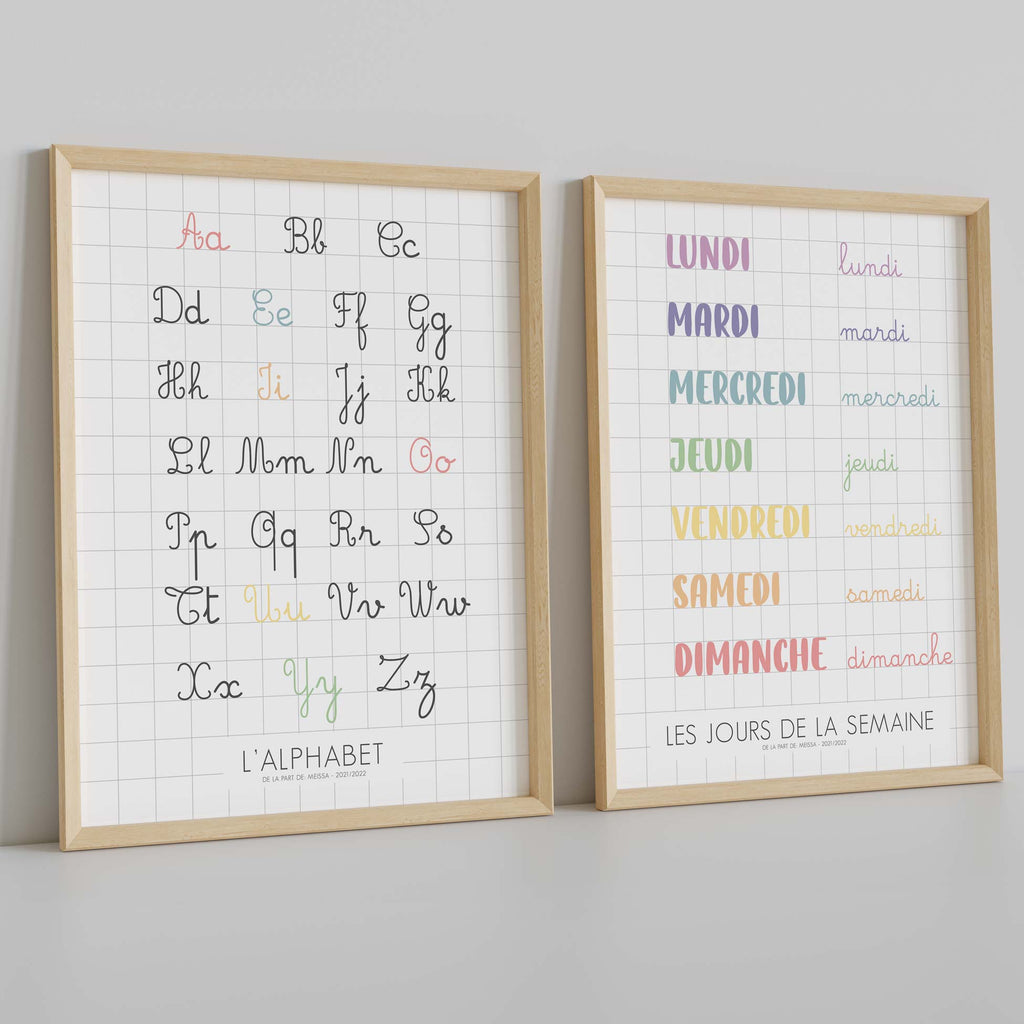 Aa Bb Cc
Dd Ee Ff Gg
Hh Ii Jj Kk
Ll Mm Nn Oo
Pp Qq Rr Ss
Tt Uu Vv Ww
Xx Yy Zz
L'ALPHABET
DE LA PART DE: MEISSA - 2021/2022
LUNDI lundi
MARDI mardi
MERCREDI mercredi
JEUDI jeudi
VENDREDI vendredi
SAMEDI samedi
DIMANCHE dimanche
LES JOURS DE LA SEMAINE
DE LA PART DE: MEISSA - 2021/2022